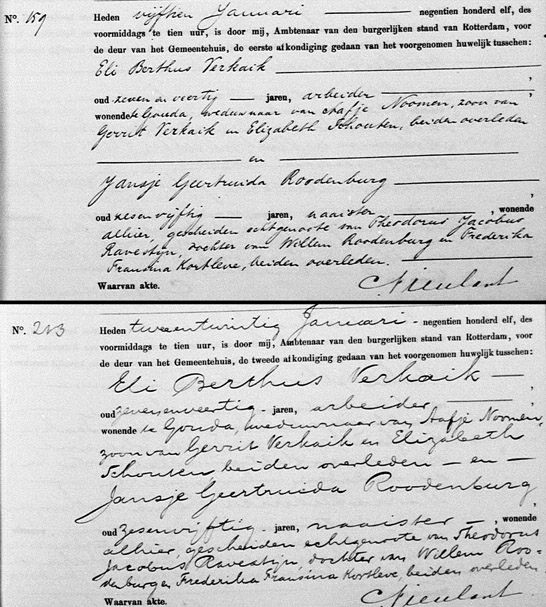 N°. 159
Heden vijftien Januari negentien honderd elf, des
voormiddags te tien uur, is door mij, Ambtenaar van den burgerlijken stand van Rotterdam, voor
de deur van het Gemeentehuis, de eerste afkondiging gedaan van het voorgenomen huwelijk tusschen:
Eli Berthus Verkaik ,
oud zeven en veertig jaren, arbeider ,
wonende te Gouda, weduwnaar van Aafje Noomen, zoon van
Gerrit Verkaik en Elizabeth Schouten, beiden overleden
en
Jansje Geertruida Roodenburg ,
oud zesenvijftig jaren, naaister , wonende
alhier, gescheiden echtgenoote van Theodorus Jacobus
Ravestijn, dochter van Willem Roodenburg en Frederika
Fransina Kortleve, beiden overleden.
Waarvan akte.
N°. 213
Heden tweeentwintig Januari - negentien honderd elf, des
voormiddags te tien uur, is door mij, Ambtenaar van den burgerlijken stand van Rotterdam, voor
de deur van het Gemeentehuis, de tweede afkondiging gedaan van het voorgenomen huwelijk tusschen:
Eli Berthus Verkaik —
oud zevenenveertig - jaren, arbeider ,
wonende te Gouda, weduwnaar van Aafje Noomen,
zoon van Gerrit Verkaik en Elizabeth
Schouten beiden overleden — en —
Jansje Geertruida Roodenburg
oud zesenvijftig - jaren, naaister — , wonende
alhier, gescheiden echtgenoote van Theodorus
Jacobus Ravestijn, dochter van Willem Roo-
denburg en Frederika Fransina Kortleve, beiden overleden
Waarvan akte.